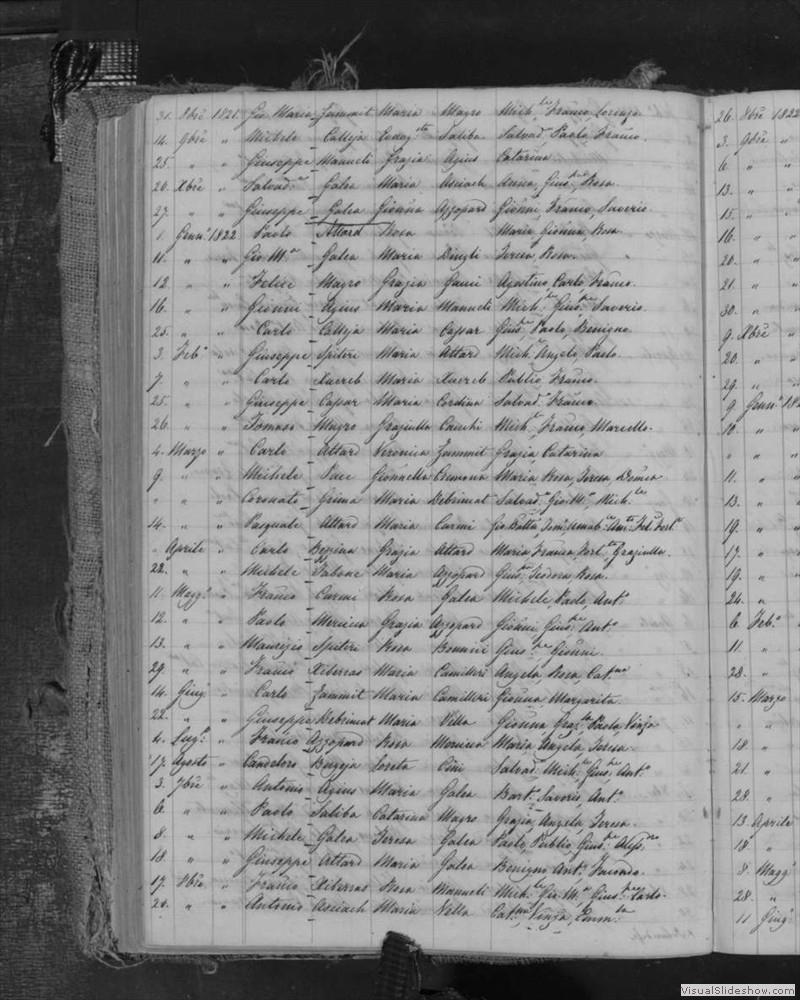 31. 8bre 1821. Gio Maria Zammit Maria Magro Mich.le Franco Lorenzo
14. 9bre " Michele Calleja Salvad. Paolo, Franco.
25. " " Giuseppe Manueli Grazia Agius Catarina
20. Xbre " Salvad.e Galea Maria Asciach Anna, Gius.pa Rosa.
27. " " Giuseppe Galea Gionna Azzopard Gionni, Franco, Saverio.
1. Genn.o 1822. Paolo Attard Rosa Maria Gionna, Rosa
11. " " Gio M.a Galea Maria Dingli Teresa, Rosa.
12. " " Felice Magro Grazia Gauci Agostino, Carlo, Franco.
16. " " Gionni Agius Maria Manueli Mich.le Gius.pe Saverio.
25. " " Carlo Calleja Maria Caspar Paolo, Benigno
3. Feb.o " Giuseppe Spiteri Maria Attard Mich. Angelo, Paolo.
7. " " Carlo Xuereb Maria Xuereb Publio, Franco.
25. " " Giuseppe Caspar Maria Cordina Salvad.e Franco
26. " " Tomaso Magro Graziulla Cauchi Mich.e, Franco, Marcello.
4. Marzo " Carlo Attard Veronica Zammit Grazia Catarina
9. " " Michele Pace Gionnella Cremona Maria Rosa, Teresa,
" " " Coronato Grima Maria Debrincat Salvad.e Gio: M.a, Mich.le
14. " " Pasquale Attard Maria Carmi Gio Batta
" Aprile " Carlo Bezzina Grazia Attard Maria Franca, Graziulla.
22. " " Michele Fabone Maria Azzopard Teodora, Rosa.
11. Magg.o " Franco Carmi Rosa Galea Michele, Paolo, Ant.o
12. " " Paolo Mercieca Grazia Azzopard Gionni, Gius.pe Ant.o
13. " " Maurizio Spiteri Rosa Bonnici Gius.pe Gionni.
29. " " Franco Xiberras Maria Camilleri Angela, Rosa, Cat.na
14. Giug.o " Carlo Zammit Maria Camilleri Gionna, Margarita.
22. " " Giuseppe Debrincat Maria Vella Gionna, Graz.la Paola, Vinza
4. Lug.o " Franco Azzopard Rosa Mercieca Maria Angela, Teresa.
17. Agosto " Candeloro Bugeja Loreta Cini Salvad.e Mich.le Gius.pe Ant.o
3. 7bre " Antonio Agius Maria Galea Bart.o Saverio, Ant.o
6. " " Paolo Saliba Catarina Magro Grazia, Angela, Teresa.
8. " " Michele Galea Teresa Galea Paolo, Publio, Gius.pe
18. " " Giuseppe Attard Maria Galea Benigno Ant.o
17. 8bre " Franco Xiberras Rosa Manueli Mich.le Gio: M.a Gius.pe Carlo.
20. " " Antonio Asciach Maria Vella Cat.na Vinza,
26. 8bre 1822
3. 9bre "
6 " "
13. " "
15. " "
16. "
20. "
21. "
30. "
9. Xbre "
20. "
29. "
9. Genn.o 182
10. "
" "
11. "
13. "
19. "
17. "
19. "
24. "
6 Feb.o
11. "
28. "
15. Marzo
" "
18. "
21. "
28. "
13 Aprile
18. "
8. Magg.o
28. "
11 Giug.o
VisualSlideshow.com